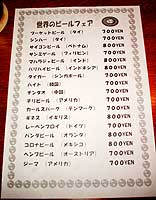 世界のビールフェア
プーケットビール (タイ) 700YEN
シンハー (タイ) 700YEN
サイゴンビール (ベトナム) 800YEN
サンミゲール (フィリピン) 700YEN
マハラジャビール (インド) 800YEN
バリハイビール (インドネシア) 800YEN
タイガー (シンガポール) 700YEN
ハイト (韓国) 700YEN
チンタオ (中国) 700YEN
チリビール (アメリカ) 800YEN
カールスバーグ (デンマーク) 700YEN
ギネス (イギリス) 800YEN
レーベンブロイ (ドイツ) 700YEN
バンタビール (オランダ) 800YEN
コロナビール (メキシコ) 800YEN
ヘンプビール (オーストリア) 700YEN
ジーマ (アメリカ) 700YEN